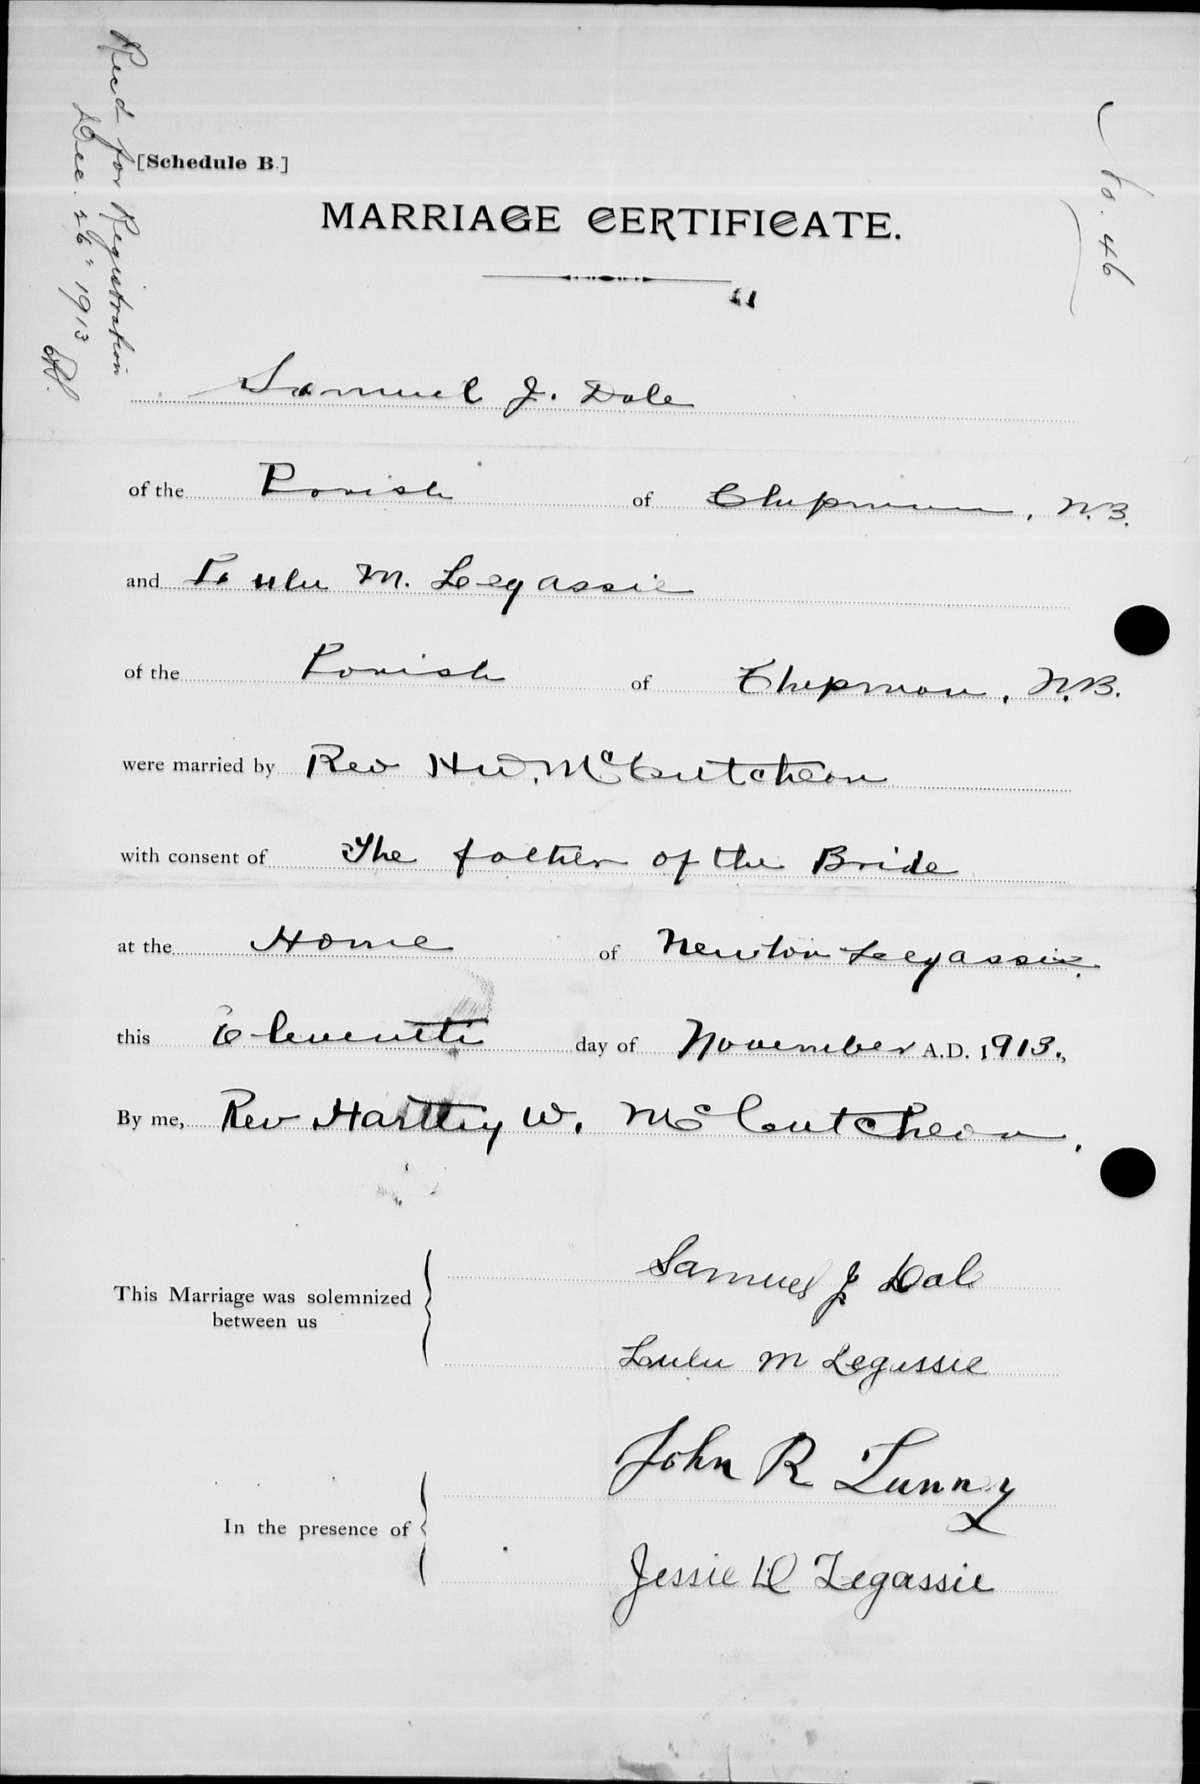 Recd for Registration
Dec. 26" 1913
No. 46
[Schedule B.]
MARRIAGE CERTIFICATE.
Samuel J. Dale
of the Parish of Chipman, N.B.
and Lulu M. Legassie
of the Parish of Chipman, N.B.
were married by Rev H.W. McCutcheon
with consent of The father of the Bride
at the Home of Newton Legassie.
this Eleventh day of November A.D. 1913.,
By me, Rev Hartley W. McCutcheon.
This Marriage was solemnized between us
Samuel J Dale
Lulu M Legassie
In the presence of
John R Lunny
Jessie D Legassie